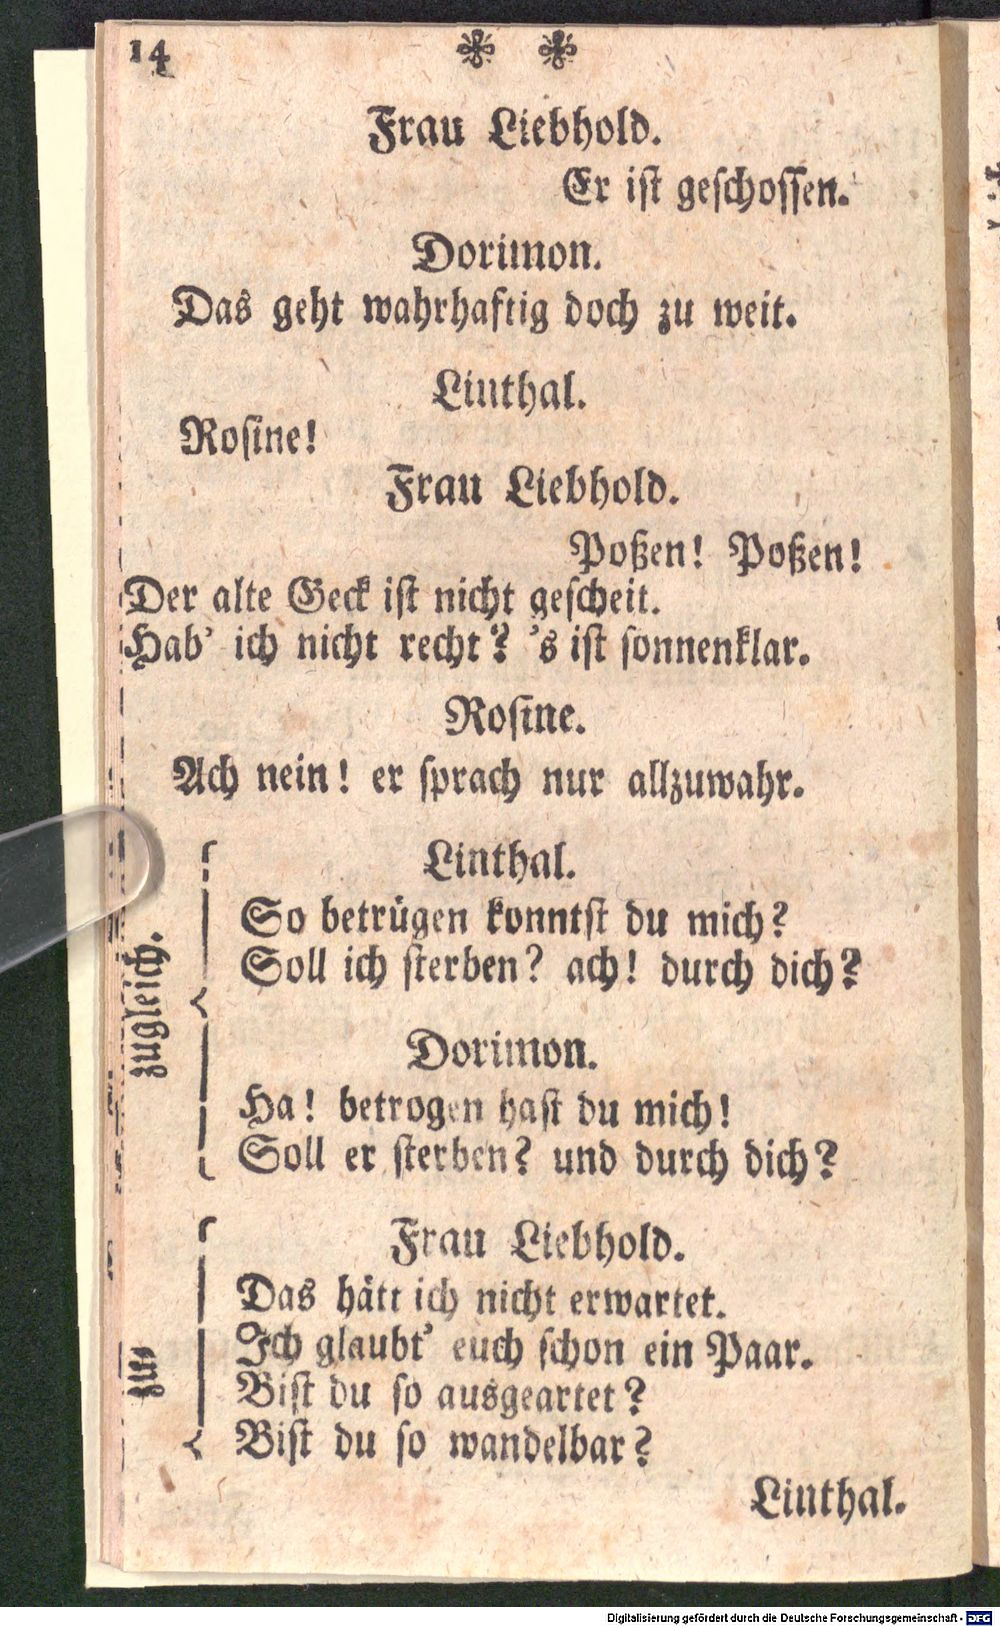 14
Frau Liebhold.
Er iſt geſchoſſen.
Dorimon.
Das geht wahrhaftig doch zu weit.
Linthal.
Roſine!
Frau Liebhold.
Poßen! Poßen!
Der alte Geck iſt nicht geſcheit.
Hab' ich nicht recht? 's iſt ſonnenklar.
Roſine.
Ach nein! er ſprach nur allzuwahr.
zugleich.
Linthal.
So betrügen konntſt du mich?
Soll ich ſterben? ach! durch dich?
Dorimon.
Ha! betrogen haſt du mich!
Soll er ſterben? und durch dich?
zu⸗
Frau Liebhold.
Das hätt ich nicht erwartet.
Ich glaubt' euch ſchon ein Paar.
Biſt du ſo ausgeartet?
Biſt du ſo wandelbar?
Linthal.
Digitalisierung gefördert durch die Deutsche Forschungsgemeinschaft - DFG